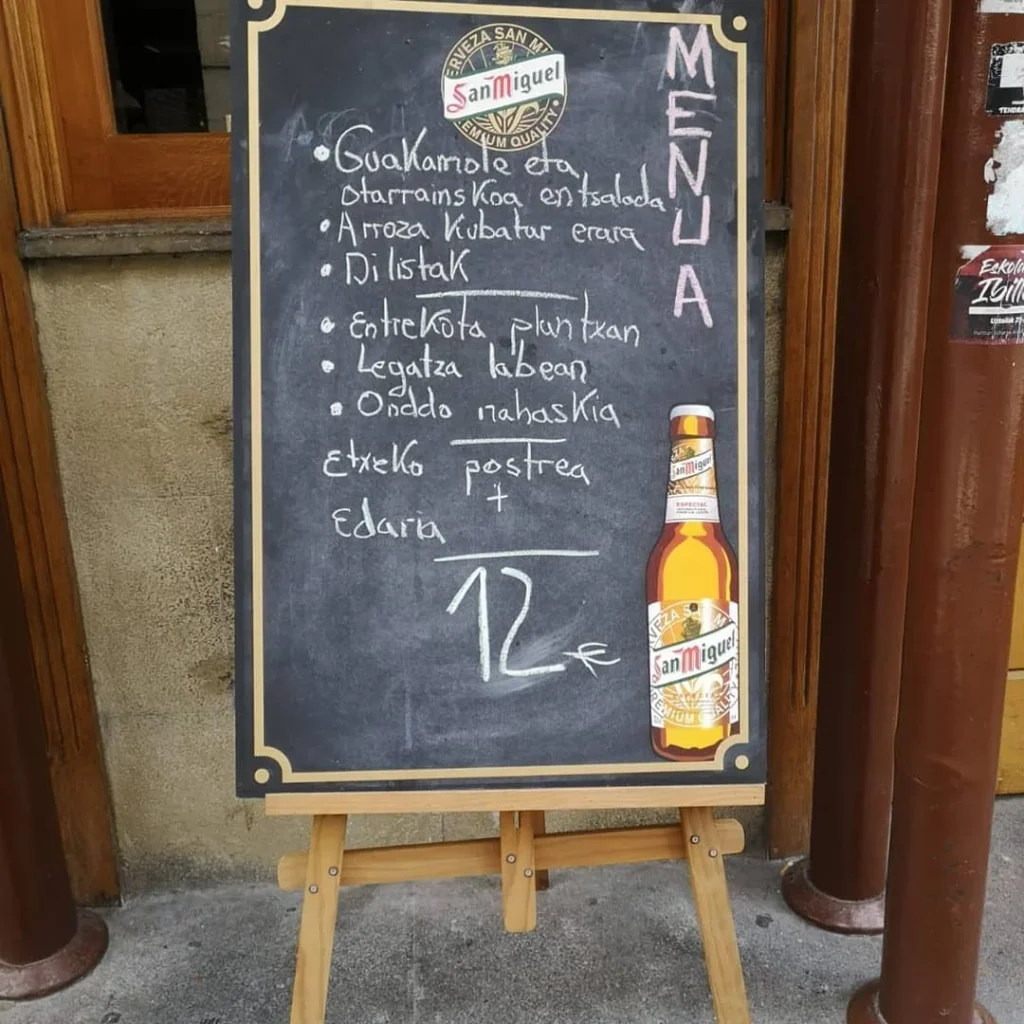 CERVEZA SAN MI
San Miguel
PREMIUM QUALITY
MENUA
• Guakamole eta
otarrainskoa entsalada
• Arroza kubatar erara
• Dilistak
• Entrekota plantxan
• Legatza labean
• Onddo nahaskia
Etxeko postrea
+
Edaria
12 €
San Miguel
ESPECIAL
San Miguel
ESPECIAL
PREMIUM QUALITY
Eskola
Ibilt